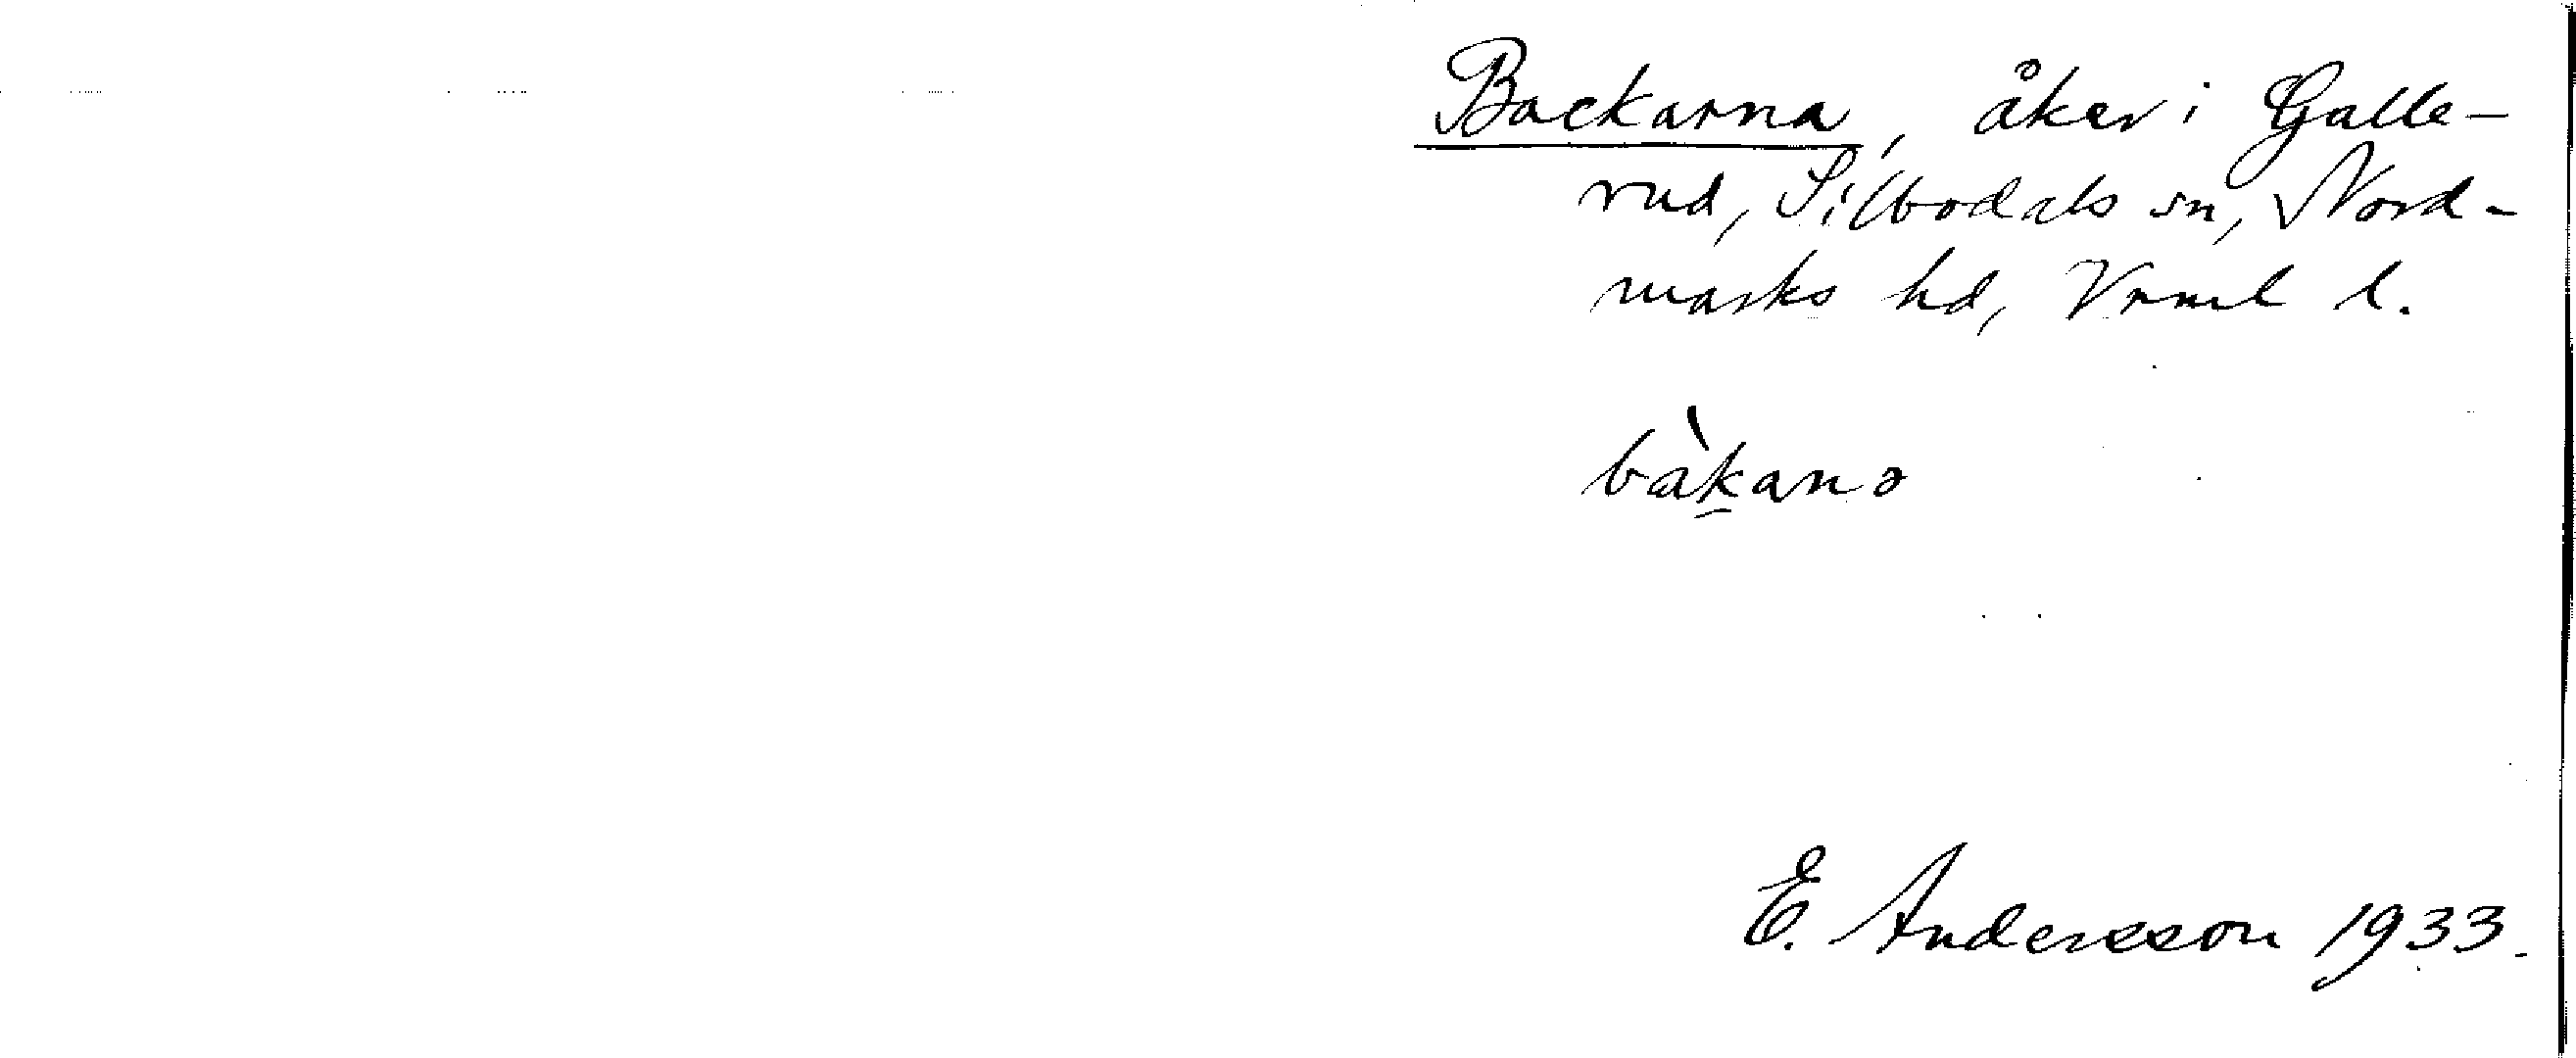 Backarna, åker i Galle-
rud, Silbodals sn, Nord-
marks hd, Vrml l.
bàkanə
E. Andersson 1933.